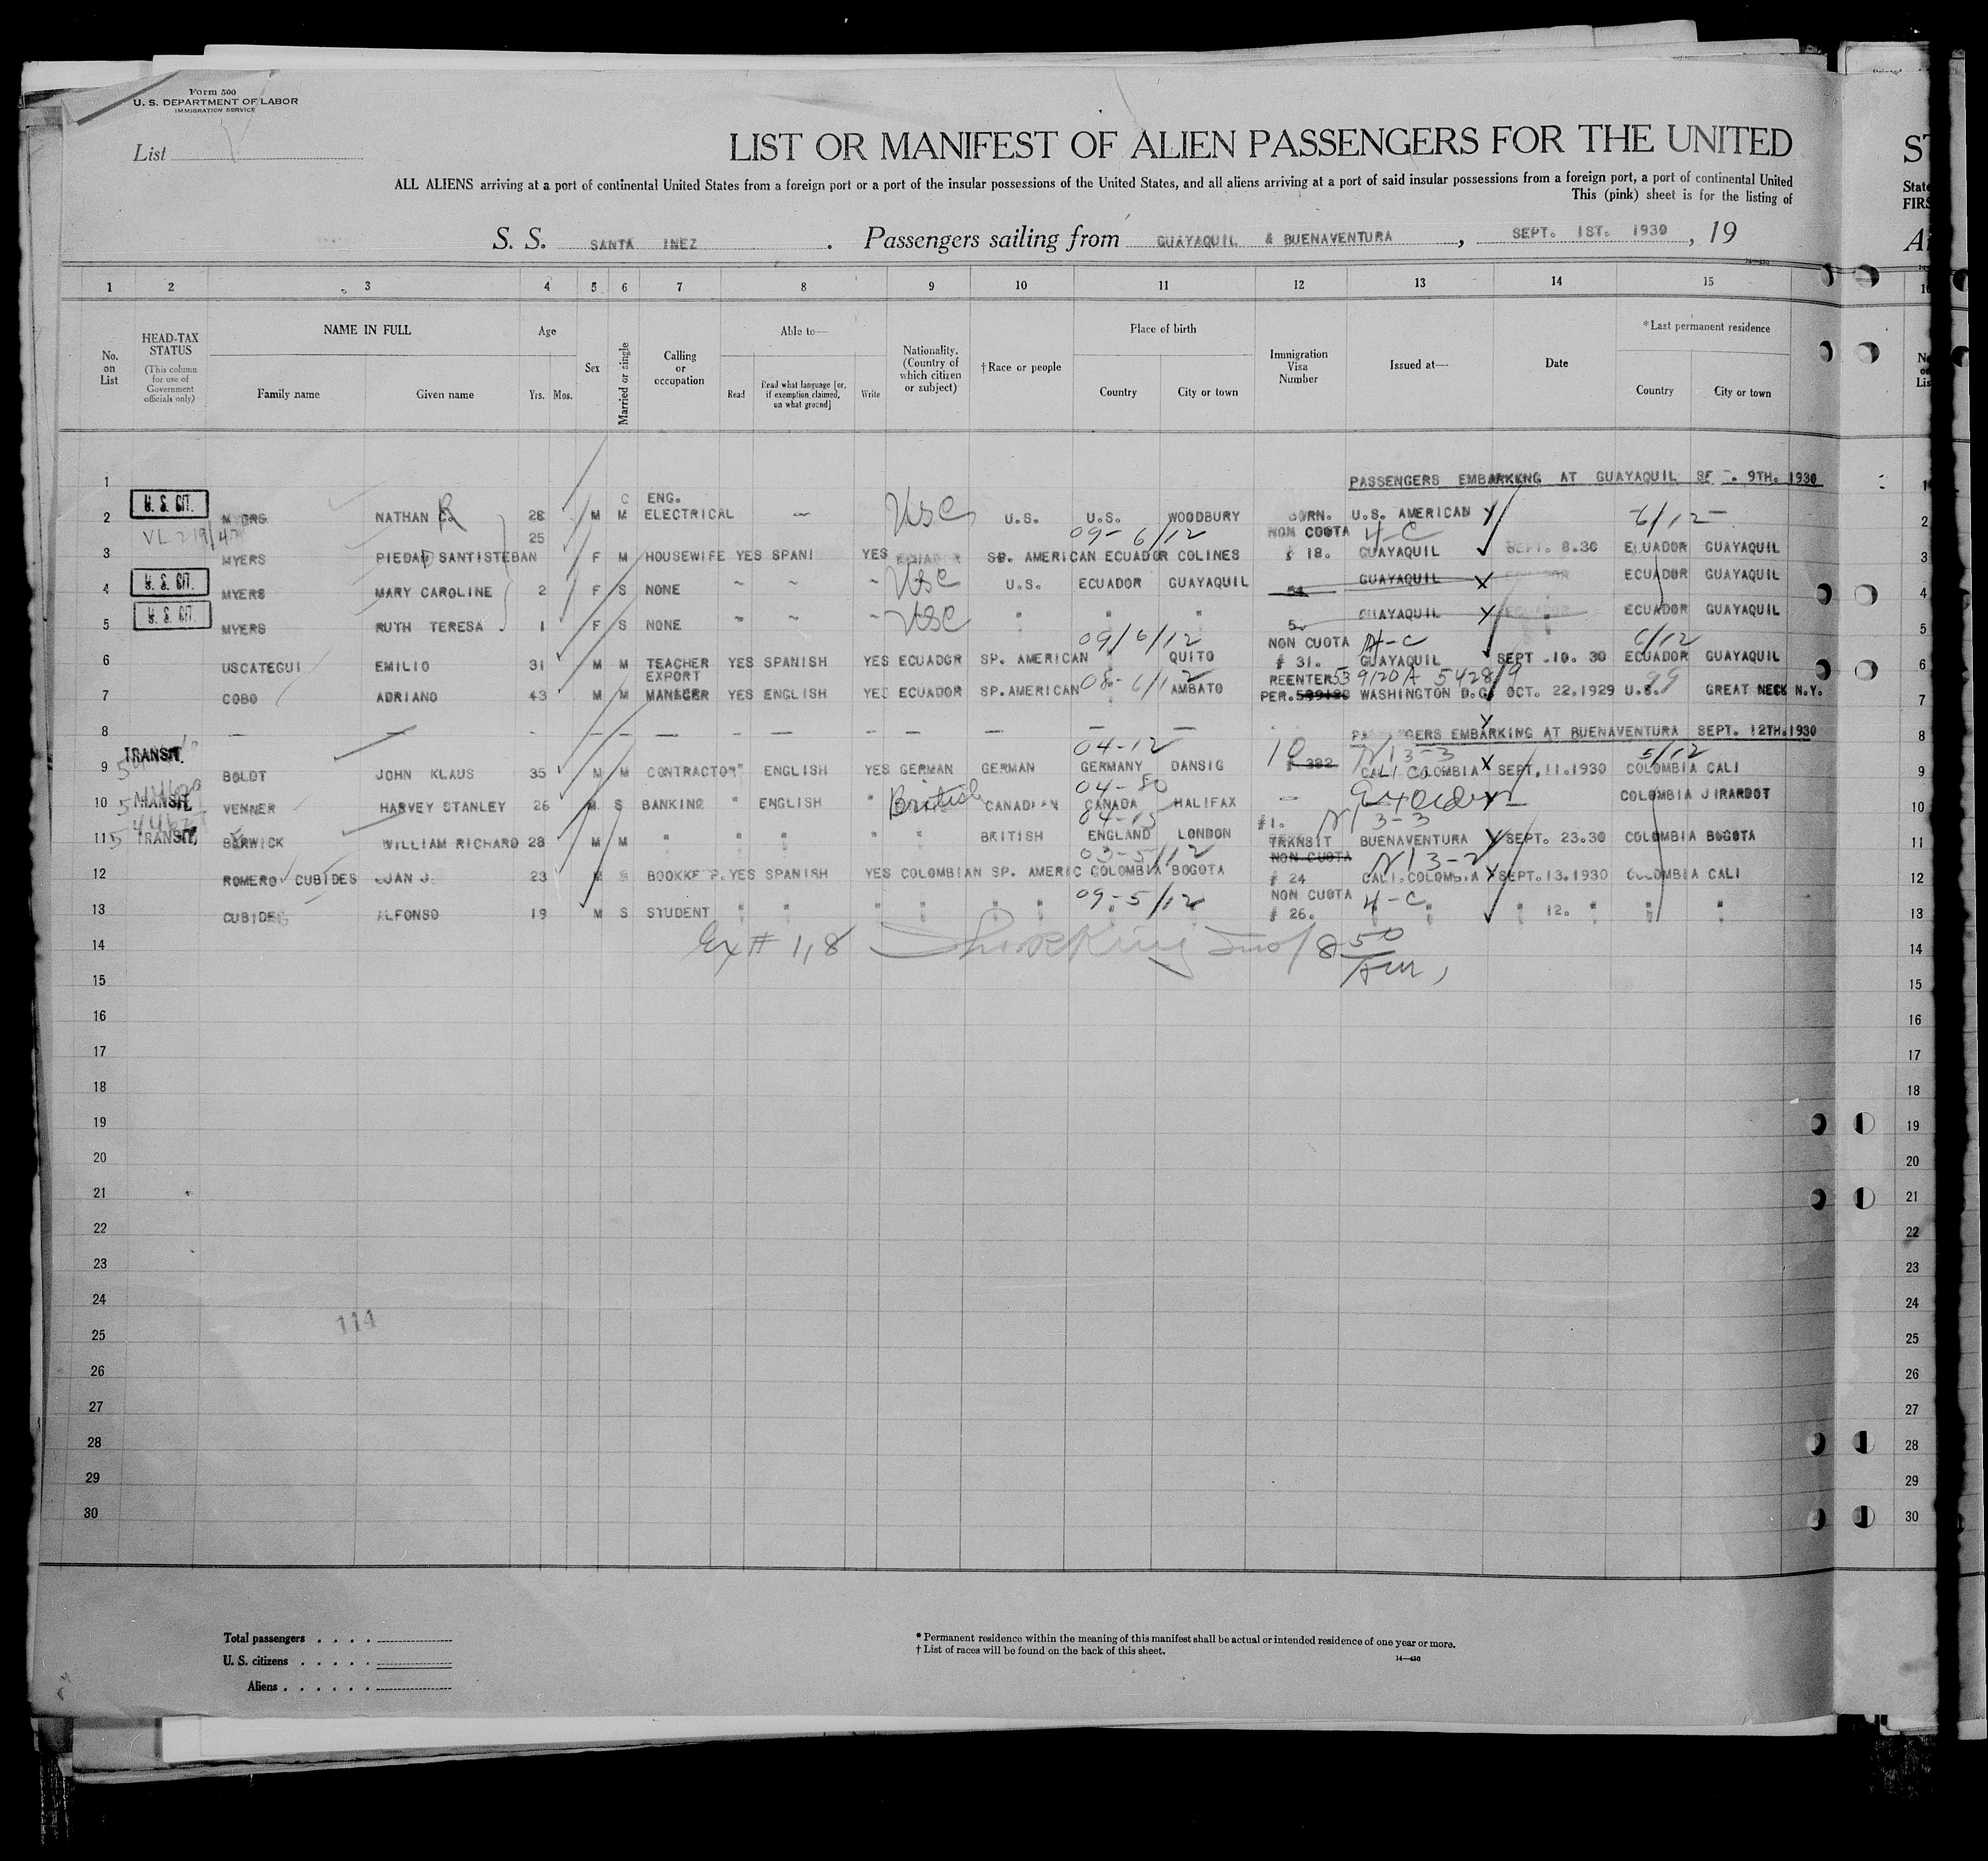 Form 500
U. S. DEPARTMENT OF LABOR
IMMIGRATION SERVICE
List
LIST OR MANIFEST OF ALIEN PASSENGERS FOR THE UNITED
ALL ALIENS arriving at a port of continental United States from a foreign port or a port of the insular possessions of the United States, and all aliens arriving at a port of said insular possessions from a foreign port, a port of continental United
This (pink) sheet is for the listing of
S. S. SANTA INEZ . Passengers sailing from GUAYAQUIL & BUENAVENTURA , SEPT. 1ST. 1930 , 19
1 2 3 4 5 6 7 8 9 10 11 12 13 14 15
No. on List
HEAD-TAX STATUS (This column for use of Government officials only)
NAME IN FULL
Family name
Given name
Age
Yrs. Mos.
Sex
Married or single
Calling or occupation
Able to—
Read
Read what language [or, if exemption claimed, on what ground]
Write
Nationality. (Country of which citizen or subject)
†Race or people
Place of birth
Country
City or town
Immigration Visa Number
Issued at—
Date
*Last permanent residence
Country
City or town
1 PASSENGERS EMBARKKNG AT GUAYAQUIL 9TH. 1930
U. S. CIT.
C ENG.
2 NATHAN R 28 M M ELECTRICAL — USC U.S. U.S. WOODBURY BORN. U.S. AMERICAN 6/12
25 09-6/12 NON COOTA 4-C
3 MYERS PIEDAD SANTISTEBAN F M HOUSEWIFE YES SPANI YES SP. AMERICAN ECUADOR COLINES # 18. GUAYAQUIL SEPT. 8.30 ECUADOR GUAYAQUIL
U. S. CIT.
4 MYERS MARY CAROLINE 2 F S NONE USC U.S. ECUADOR GUAYAQUIL GUAYAQUIL ECUADOR GUAYAQUIL
U. S. CIT.
5 MYERS RUTH TERESA 1 F S NONE USC " " " GUAYAQUIL ECUADOR GUAYAQUIL
09/6/12 NON CUOTA 4-C 6/12
6 USCATEGUI EMILIO 31 M M TEACHER YES SPANISH YES ECUADOR SP. AMERICAN QUITO # 31. GUAYAQUIL SEPT .10. 30 ECUADOR GUAYAQUIL
EXPORT 08-6/12 REENTER 539120 A 542819 99
7 COBO ADRIANO 43 M M MANAGER YES ENGLISH YES ECUADOR SP.AMERICAN AMBATO PER. WASHINGTON D.C. OCT. 22.1929 U.S. GREAT NECK N.Y.
8 — — - - — — - — — — — — PASSENGERS EMBARKING AT BUENAVENTURA SEPT. 12TH.1930
TRANSIT. 04-12 10 3-3 5/12
9 BOLDT JOHN KLAUS 35 M M CONTRACTOR " ENGLISH YES GERMAN GERMAN GERMANY DANSIG 382 CALI COLOMBIA SEPT.11.1930 COLOMBIA CALI
TRANSIT. 04-80
10 VENNER HARVEY STANLEY 26 M S BANKING " ENGLISH " British CANADIAN CANADA HALIFAX — COLOMBIA JIRARDOT
TRANSIT. 04-15 #1. 3-3
11 WILLIAM RICHARD 28 M M " " " " " BRITISH ENGLAND LONDON TRANSIT BUENAVENTURA SEPT. 23.30 COLOMBIA BOGOTA
03-5/12 NON CUOTA
12 ROMERO CUBIDES JUAN J. 23 M S BOOKKEEP. YES SPANISH YES COLOMBIAN SP. AMERIC COLOMBIA BOGOTA # 24 CALI.COLOMBIA SEPT.13.1930 COLOMBIA CALI
09-5/12 NON CUOTA 4-C
13 CUBIDES ALFONSO 19 M S STUDENT " " " " " " " " # 26. " " " 12. " " "
14 Ex # 1, 8 8 50
AM,
15
16
17
18
19
20
21
22
23
24
114
25
26
27
28
29
30
Total passengers
U. S. citizens
Aliens
* Permanent residence within the meaning of this manifest shall be actual or intended residence of one year or more.
† List of races will be found on the back of this sheet.
14—430